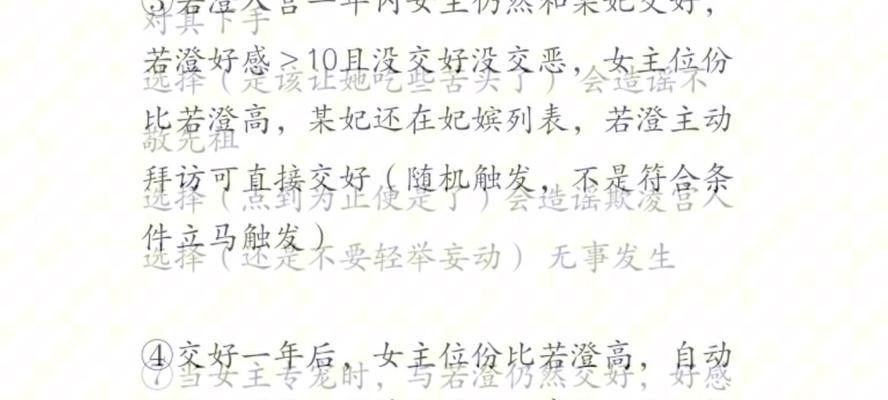 ③若澄入宫一年内女主仍然和某妃交好，
对其下手
若澄好感≥10且没交好没交恶，女主位份
选择（是该让她吃些苦头了）会造谣不
比若澄高，某妃还在妃嫔列表，若澄主动
敬先祖
拜访可直接交好（随机触发，不是符合条
选择（点到为止便是了）会造谣欺凌宫人
件立马触发）
选择（还是不要轻举妄动） 无事发生
④交好一年后，女主位份比若澄高，自动
⑦当女主专宠时，与若澄仍然交好，好感